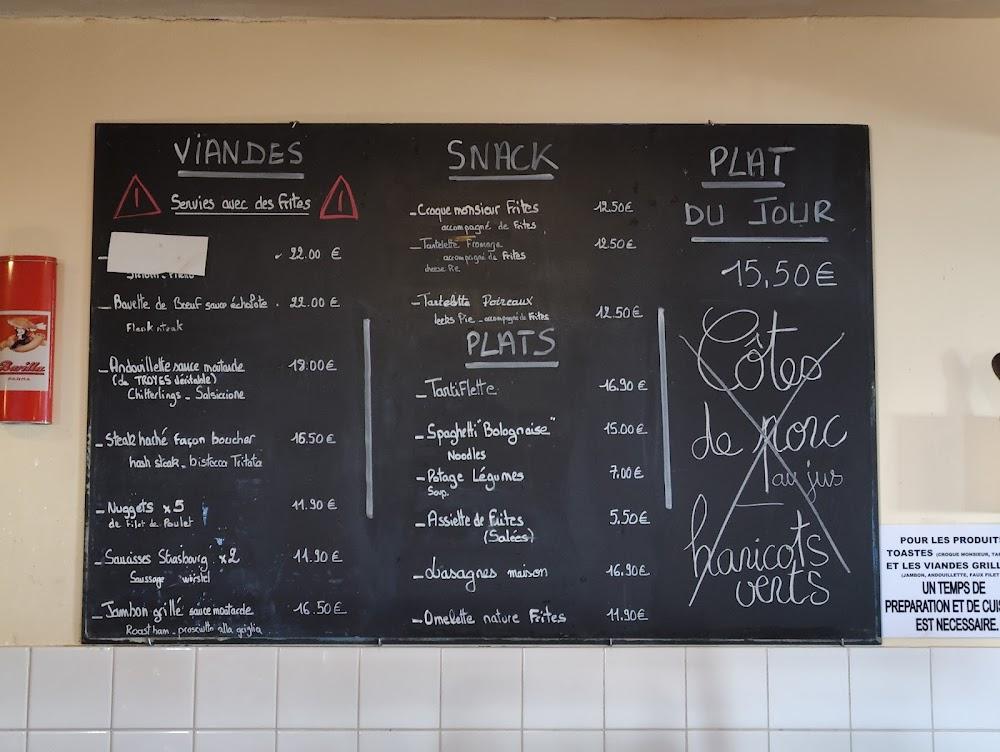 VIANDES
! Servies avec des Frites !
- 22.00 €
- Bavette de Bœuf sauce échalote . 22.00 €
Flank steak
- Andouillette sauce moutarde 18.00€
(de TROYES véritable)
Chitterlings - Salsiccione
- Steak haché façon boucher 16.50€
hash steak - bistecca Tritata
- Nuggets x5 11.90 €
de Filet de Poulet
- Saucisses Strasbourg x2 11.90€
Saussage würstel
- Jambon grillé sauce moutarde 16.50€
Roast ham - prosciutto alla griglia
SNACK
- Croque monsieur Frites 12.50€
accompagné de Frites
- Tartelette Fromage 12.50€
accompagné de Frites
cheese Pie
- Tartelette Poireaux 12.50€
leeks Pie - accompagné de Frites
PLATS
- Tartiflette 16.90€
- Spaghetti "Bolognaise" 15.00€
Noodles
- Potage Légumes 7.00€
Soup.
- Assiette de Frites 5.50€
(Salées)
- Lasagnes maison 16.90€
- Omelette nature Frites 11.90€
PLAT
DU JOUR
15,50€
Côtes
de porc
au jus
-
haricots
verts
Barilla
PARMA
POUR LES PRODUITS
TOASTES (CROQUE MONSIEUR,
ET LES VIANDES
(JAMBON, ANDOUILLETTE, FAUX FILET
UN TEMPS DE
PREPARATION ET DE
EST NECESSAIRE.